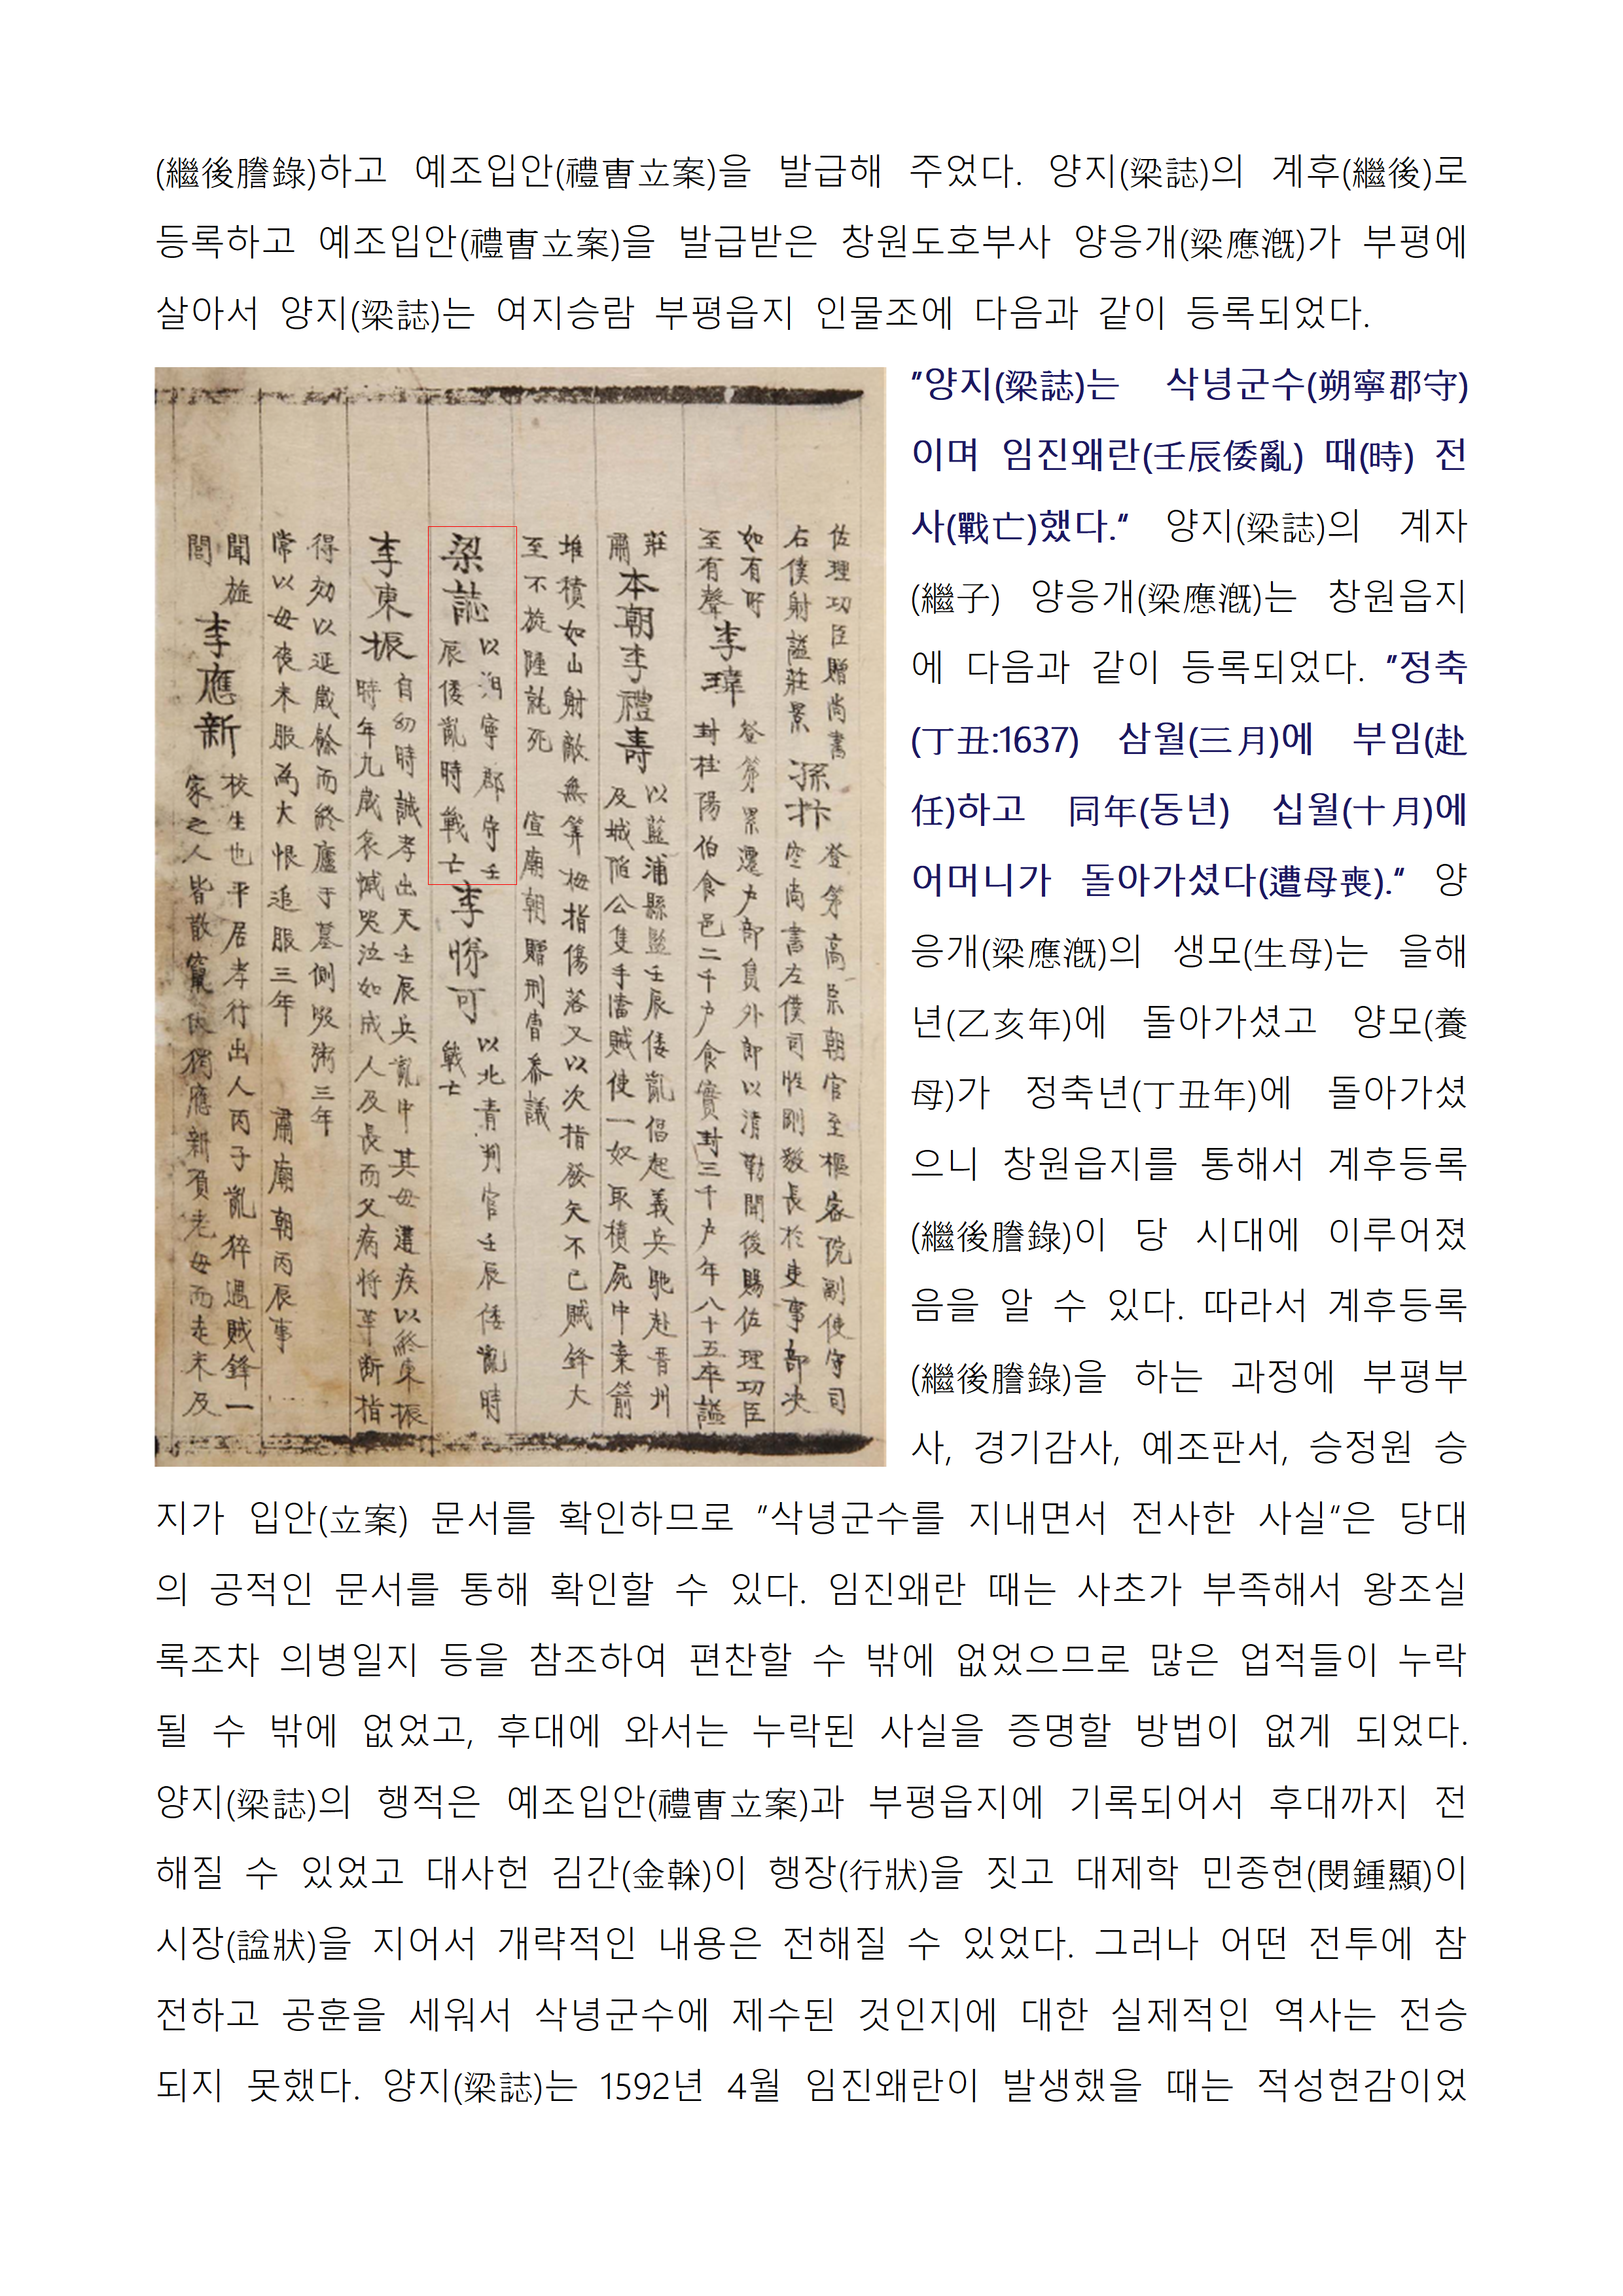 (繼後謄錄)하고 예조입안(禮曹立案)을 발급해 주었다. 양지(梁誌)의 계후(繼後)로
등록하고 예조입안(禮曹立案)을 발급받은 창원도호부사 양응개(梁應漑)가 부평에
살아서 양지(梁誌)는 여지승람 부평읍지 인물조에 다음과 같이 등록되었다.
佐理功臣贈尚書
右僕射謚莊景
孫抃
登第高宗朝官至樞密院副使守司
空尚書左僕司性剛毅長於吏事部决
如有所
至有聲
李瑋
登第累遷戶部員外郎以清勤聞後賜佐理功臣
封桂陽伯食邑二千戶食實封三千戶年八十五卒謚
莊
肅
本朝李禮壽
以藍浦縣監壬辰倭亂倡起義兵馳赴晋州
及城陷公隻手當賊使一奴取積屍中棄箭
堆積如山射敵無筭拇指傷落又以次指發矢不已賊鋒大
至不旋踵就死
宣廟朝贈刑曹叅議
梁誌
以朔寧郡守壬
辰倭亂時戰亡
李悌可
以北青判官壬辰倭亂時
戰亡
李東振
自幼時誠孝出天壬辰兵亂中其母遘疾以終東振
時年九歲哀慽哭泣如成人及長而父病將革断指
得効以延歲餘而終廬于墓側啜粥三年
常以母喪未服為大恨追服三年
肅廟朝丙辰事
聞旌
閭
李應新
校生也平居孝行出人丙子亂猝遇賊鋒一
家之人皆散竄 獨應新負老母而走未及
"양지(梁誌)는 삭녕군수(朔寧郡守)
이며 임진왜란(壬辰倭亂) 때(時) 전
사(戰亡)했다." 양지(梁誌)의 계자
(繼子) 양응개(梁應漑)는 창원읍지
에 다음과 같이 등록되었다. "정축
(丁丑:1637) 삼월(三月)에 부임(赴
任)하고 同年(동년) 십월(十月)에
어머니가 돌아가셨다(遭母喪)." 양
응개(梁應漑)의 생모(生母)는 을해
년(乙亥年)에 돌아가셨고 양모(養
母)가 정축년(丁丑年)에 돌아가셨
으니 창원읍지를 통해서 계후등록
(繼後謄錄)이 당 시대에 이루어졌
음을 알 수 있다. 따라서 계후등록
(繼後謄錄)을 하는 과정에 부평부
사, 경기감사, 예조판서, 승정원 승
지가 입안(立案) 문서를 확인하므로 "삭녕군수를 지내면서 전사한 사실"은 당대
의 공적인 문서를 통해 확인할 수 있다. 임진왜란 때는 사초가 부족해서 왕조실
록조차 의병일지 등을 참조하여 편찬할 수 밖에 없었으므로 많은 업적들이 누락
될 수 밖에 없었고, 후대에 와서는 누락된 사실을 증명할 방법이 없게 되었다.
양지(梁誌)의 행적은 예조입안(禮曹立案)과 부평읍지에 기록되어서 후대까지 전
해질 수 있었고 대사헌 김간(金榦)이 행장(行狀)을 짓고 대제학 민종현(閔鍾顯)이
시장(諡狀)을 지어서 개략적인 내용은 전해질 수 있었다. 그러나 어떤 전투에 참
전하고 공훈을 세워서 삭녕군수에 제수된 것인지에 대한 실제적인 역사는 전승
되지 못했다. 양지(梁誌)는 1592년 4월 임진왜란이 발생했을 때는 적성현감이었